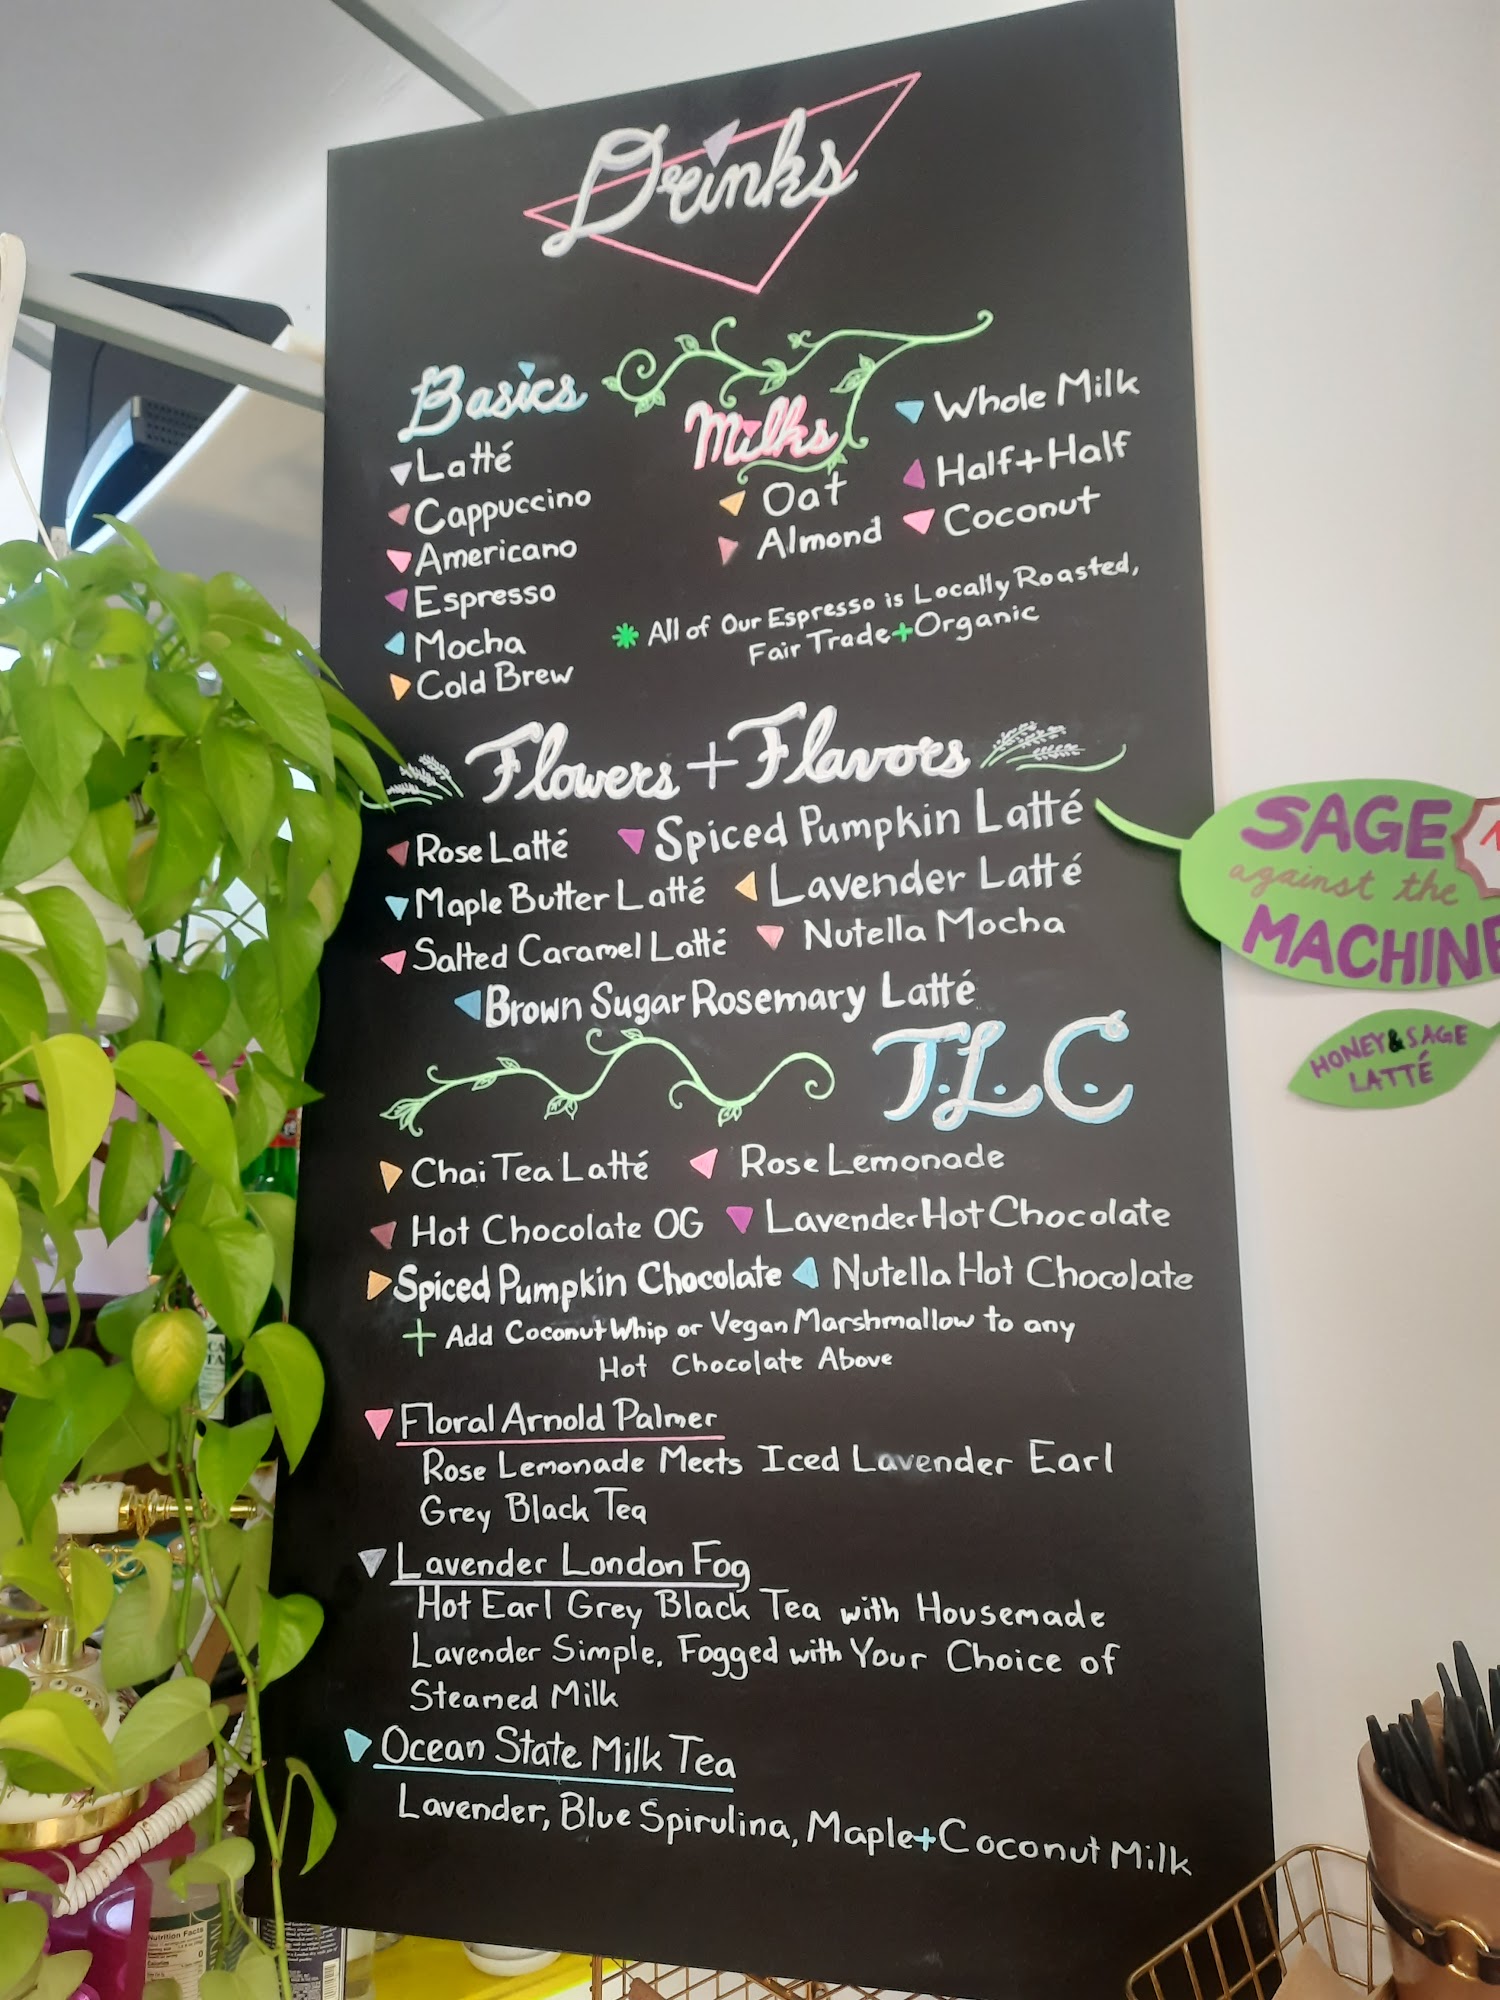 Drinks
Basics
Latté
Cappuccino
Americano
Espresso
Mocha
Cold Brew
Milks
Oat
Almond
Whole Milk
Half+Half
Coconut
All of Our Espresso is Locally Roasted,
Fair Trade+Organic
Flowers + Flavors
Rose Latté
Spiced Pumpkin Latté
Maple Butter Latté
Lavender Latté
Salted Caramel Latté
Nutella Mocha
Brown Sugar Rosemary Latté
T.L.C.
Chai Tea Latté
Rose Lemonade
Hot Chocolate OG
Lavender Hot Chocolate
Spiced Pumpkin Chocolate
Nutella Hot Chocolate
+ Add Coconut Whip or Vegan Marshmallow to any
Hot Chocolate Above
Floral Arnold Palmer
Rose Lemonade Meets Iced Lavender Earl
Grey Black Tea
Lavender London Fog
Hot Earl Grey Black Tea with Housemade
Lavender Simple. Fogged with Your Choice of
Steamed Milk
Ocean State Milk Tea
Lavender, Blue Spirulina, Maple+Coconut Milk
SAGE
against the
MACHINE
HONEY&SAGE
LATTÉ
Nutrition Facts